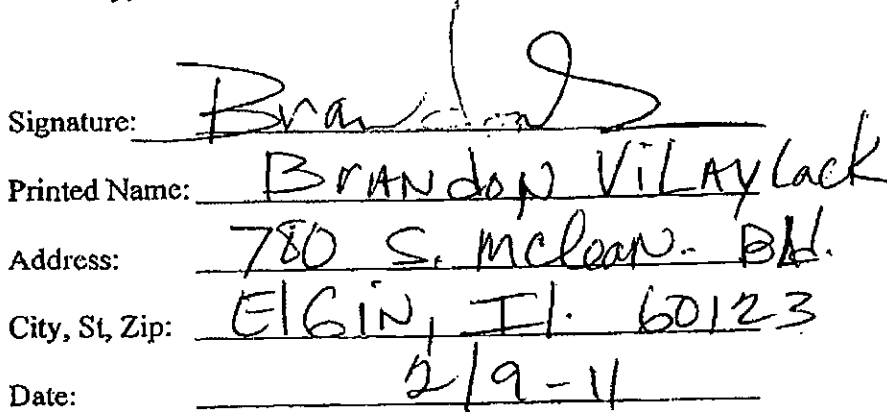 Signature: Brandon
Printed Name: BrANdoN ViLAYLack
Address: 780 S. Mclean. Bld.
City, St, Zip: ElGiN, Il. 60123
Date: 2/9-11